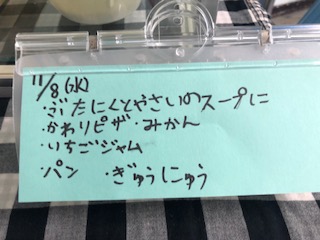 11/8(水)
・ぶたにくとやさいのスープに
・かわりピザ ・みかん
・いちごジャム
・パン ・ぎゅうにゅう